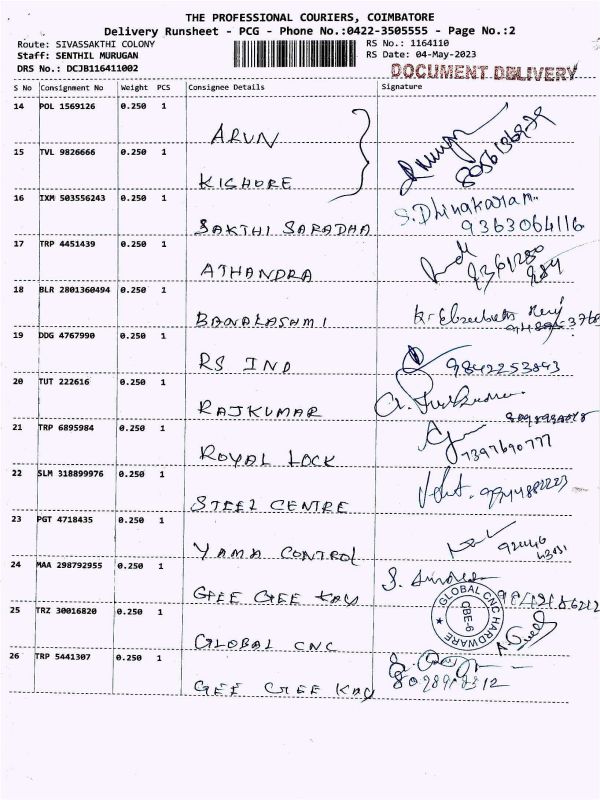 THE PROFESSIONAL COURIERS, COIMBATORE
Delivery Runsheet - PCG - Phone No.:0422-3505555 - Page No.:2
Route: SIVASSAKTHI COLONY RS No.: 1164110
Staff: SENTHIL MURUGAN RS Date: 04-May-2023
DRS No.: DCJB116411002 DOCUMENT DELIVERY
S No Consignment No Weight PCS Consignee Details Signature
14 POL 1569126 0.250 1
ARUN
15 TVL 9826666 0.250 1
KISHORE
16 IXM 503556243 0.250 1 S. Dhinakaran
SAKTHI SARADHA 9363064116
17 TRP 4451439 0.250 1
ATHANDRA 9361280 984
18 BLR 2801360494 0.250 1
BANALASHMI
19 DDG 4767990 0.250 1
RS IND 9842253893
20 TUT 222616 0.250 1
RAJKUMAR
21 TRP 6895984 0.250 1
ROYAL LOCK 7397690777
22 SLM 318899976 0.250 1
STEEL CENTRE
23 PGT 4718435 0.250 1
YAMA CONTROL
24 MAA 298792955 0.250 1
GEE GEE KAY
GLOBAL CNC HARDWARE
CBE-6
25 TRZ 30016820 0.250 1
GLOBAL CNC
26 TRP 5441307 0.250 1
GEE GEE KAY